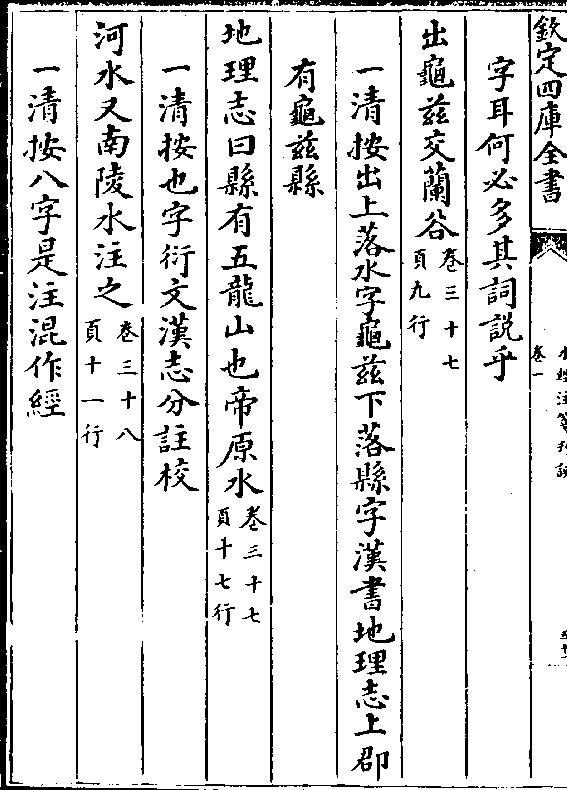 欽定四庫全書
水經注箋刊誤
卷一
字耳何必多其詞説乎
出龜兹交蘭谷卷三十七頁九行
一清按出上落水字龜兹下落縣字漢書地理志上郡
有龜兹縣
地理志曰縣有五龍山也帝原水卷三十七頁十七行
一清按也字衍文漢志分註校
河水又南陵水注之卷三十八頁十一行
一清按八字是注混作經